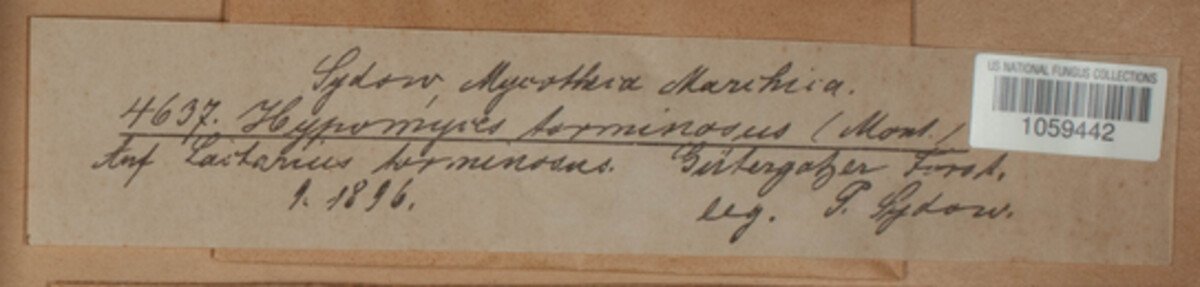 Sydow, Mycotheca Marchica.
4637. Hypomyces torminosus (Mont.)
Auf Lactarius torminosus. Gütergotzer Forst.
9. 1896. leg. P. Sydow.
US NATIONAL FUNGUS COLLECTIONS
1059442